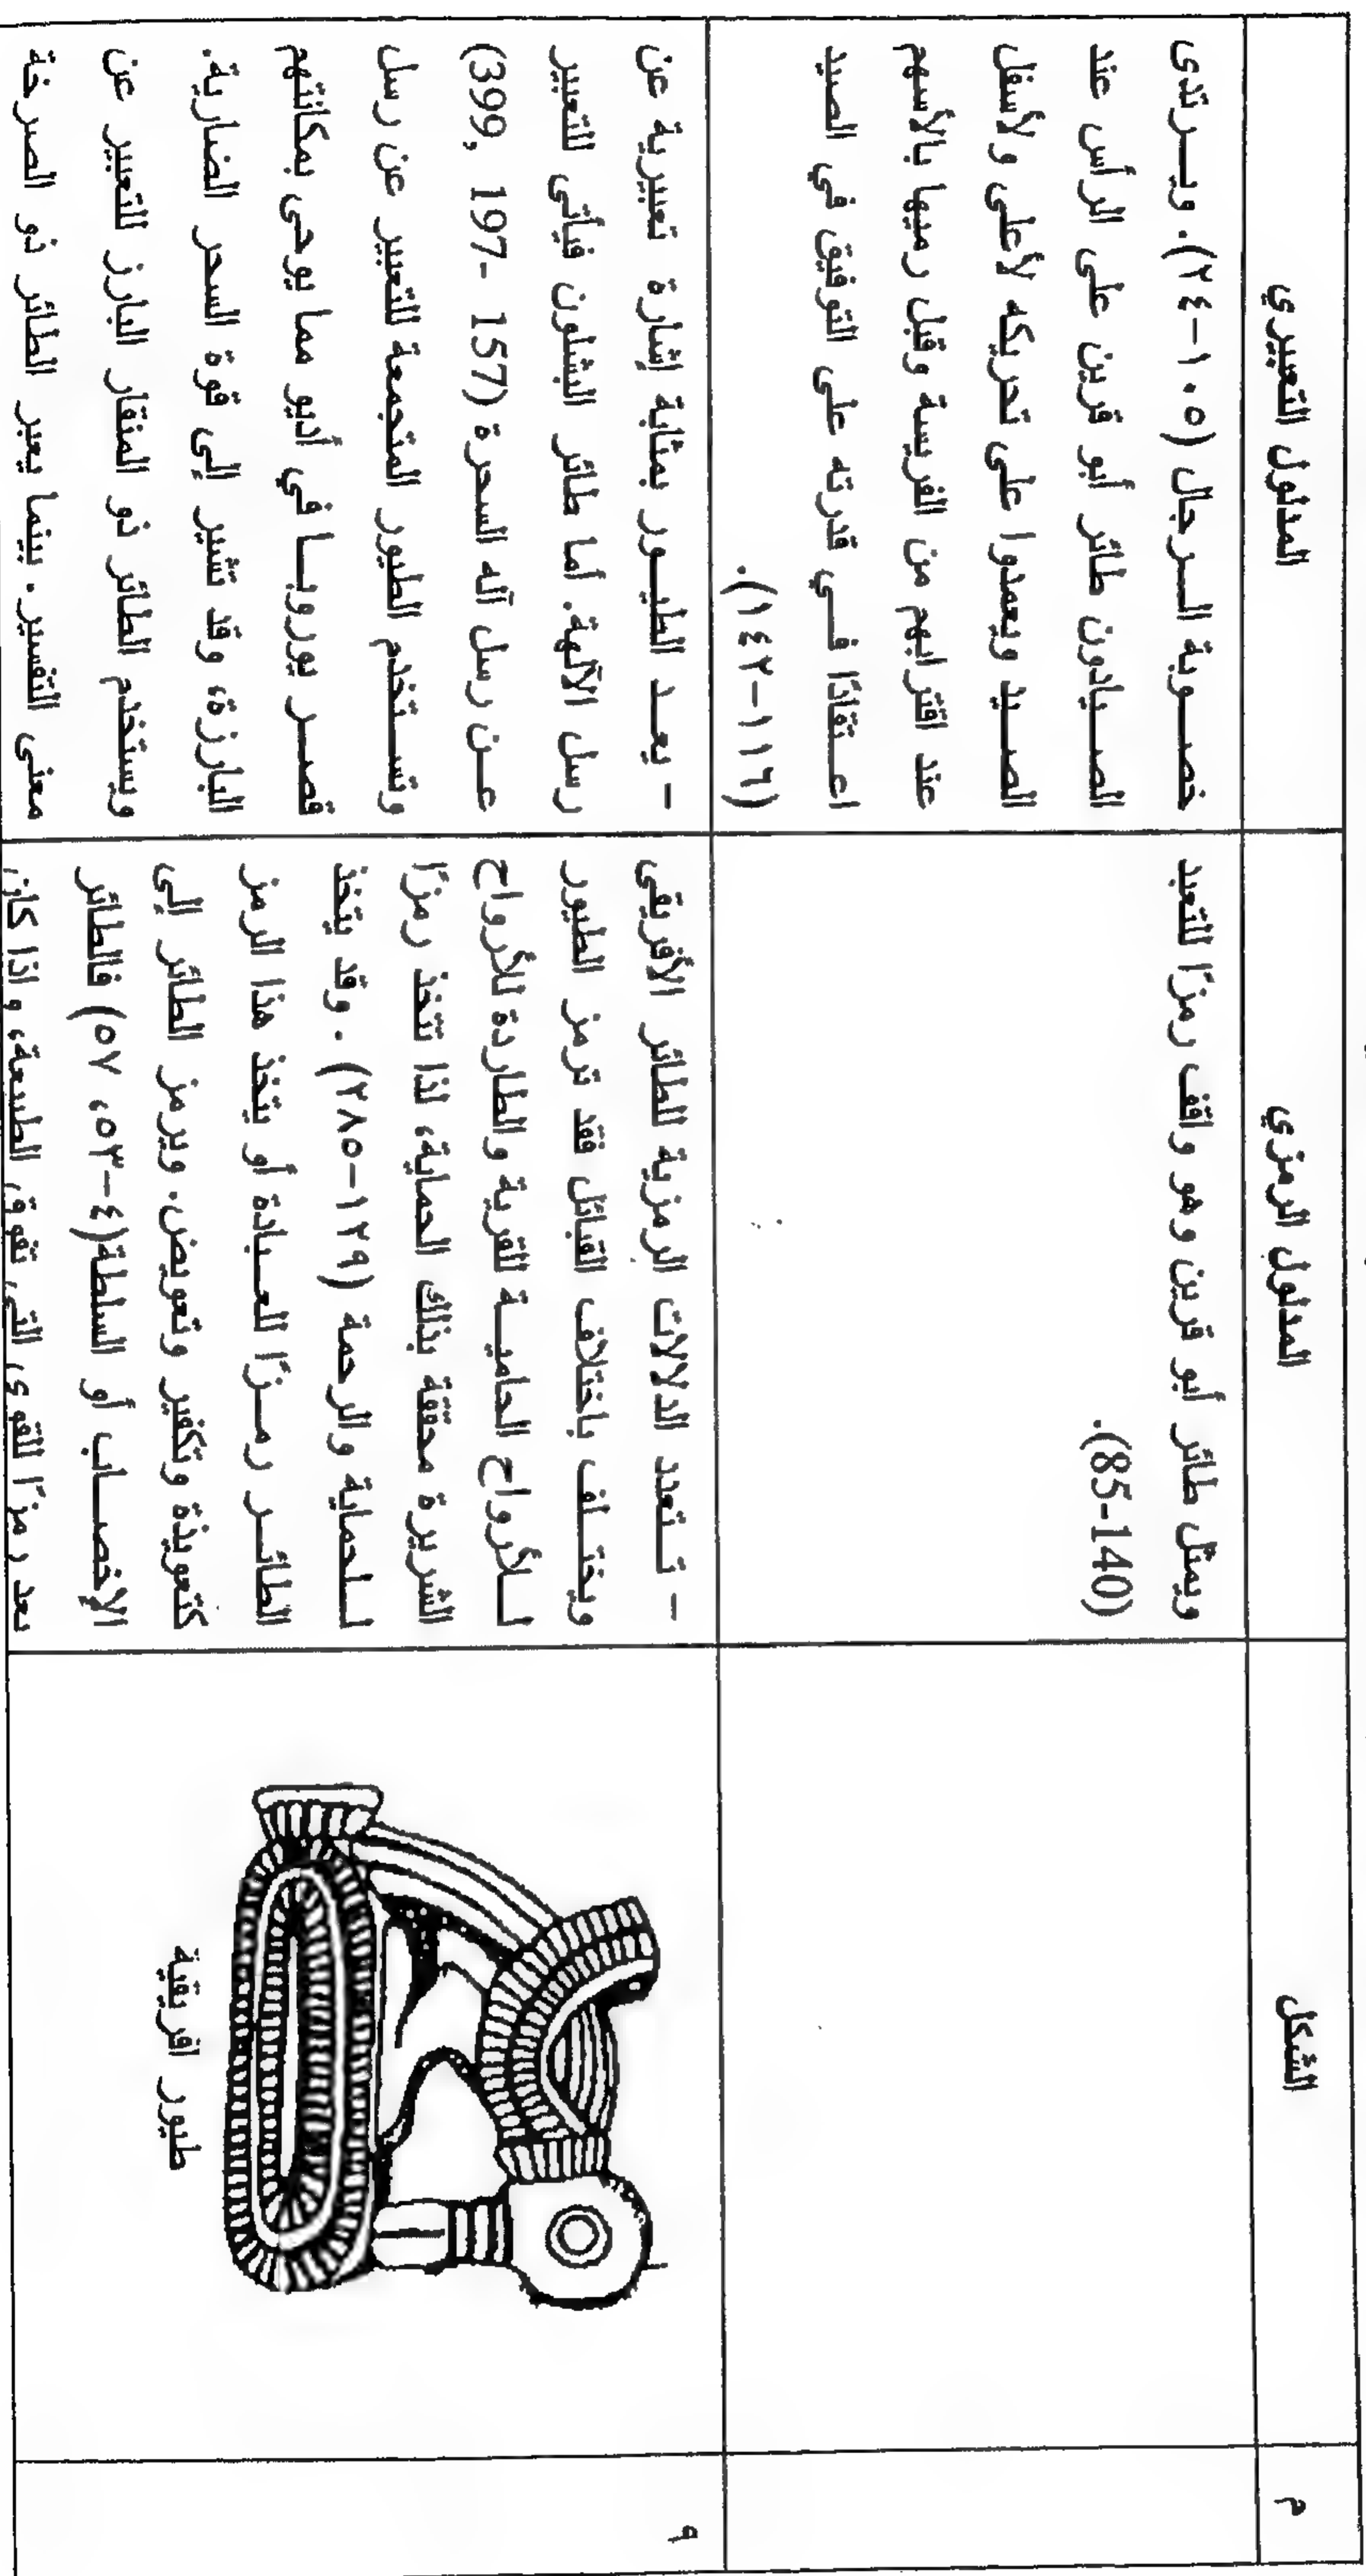 م
الشكل
المدلول الرمزي
المدلول التعبيري
ويمثل طائر أبو قرين وهو واقف رمزًا للتعبد
(85-140).
خصـوبة الـرجال (١٠٥-٢٤). ويـرتدى
الصـيادون طائر أبو قرين على الرأس عند
الصـيد ويعمدوا على تحريكه لأعلى ولأسفل
عند اقترابهم من الفريسة وقبل رميها بالأسهم
اعـتقادًا فـي قدرته على التوفيق في الصيد
(١١٦-١٤٢).
٩
طيور افريقية
- تـتعدد الدلالات الرمزية للطائر الأفريقى
ويختـلف باختلاف القبائل فقد ترمز الطيور
لـلأرواح الحاميـة للقرية والطاردة للأرواح
الشريرة محققة بذلك الحماية، لذا تتخذ رمزًا
لـلحماية والرحمة (١٢٩-٢٨٥). وقد يتخذ
الطائـر رمـزًا للعـبادة أو يتخذ هذا الرمز
كتعويذة وتكفير وتعويض. ويرمز الطائر إلى
الإخصـاب أو السلطة(٤-٥٣، ٥٧) فالطائر
يعد رمزًا للقوى التى تفوق الطبيعة، وإذا كان
- يعـد الطيـور بمثابة إشارة تعبيرية عن
رسل الآلهة. أما طائر البشلون فيأتى للتعبير
عـن رسل آله السحرة (157 -197 ,399)
وتسـتخدم الطيور المتجمعة للتعبير عن رسل
قصـر يوروبـا في أديو مما يوحى بمكانتهم
البارزة، وقد تشير إلى قوة السحر الضارية.
ويستخدم الطائر ذو المنقار البارز للتعبير عن
معنى التفسير. بينما يعبر الطائر ذو الصرخة